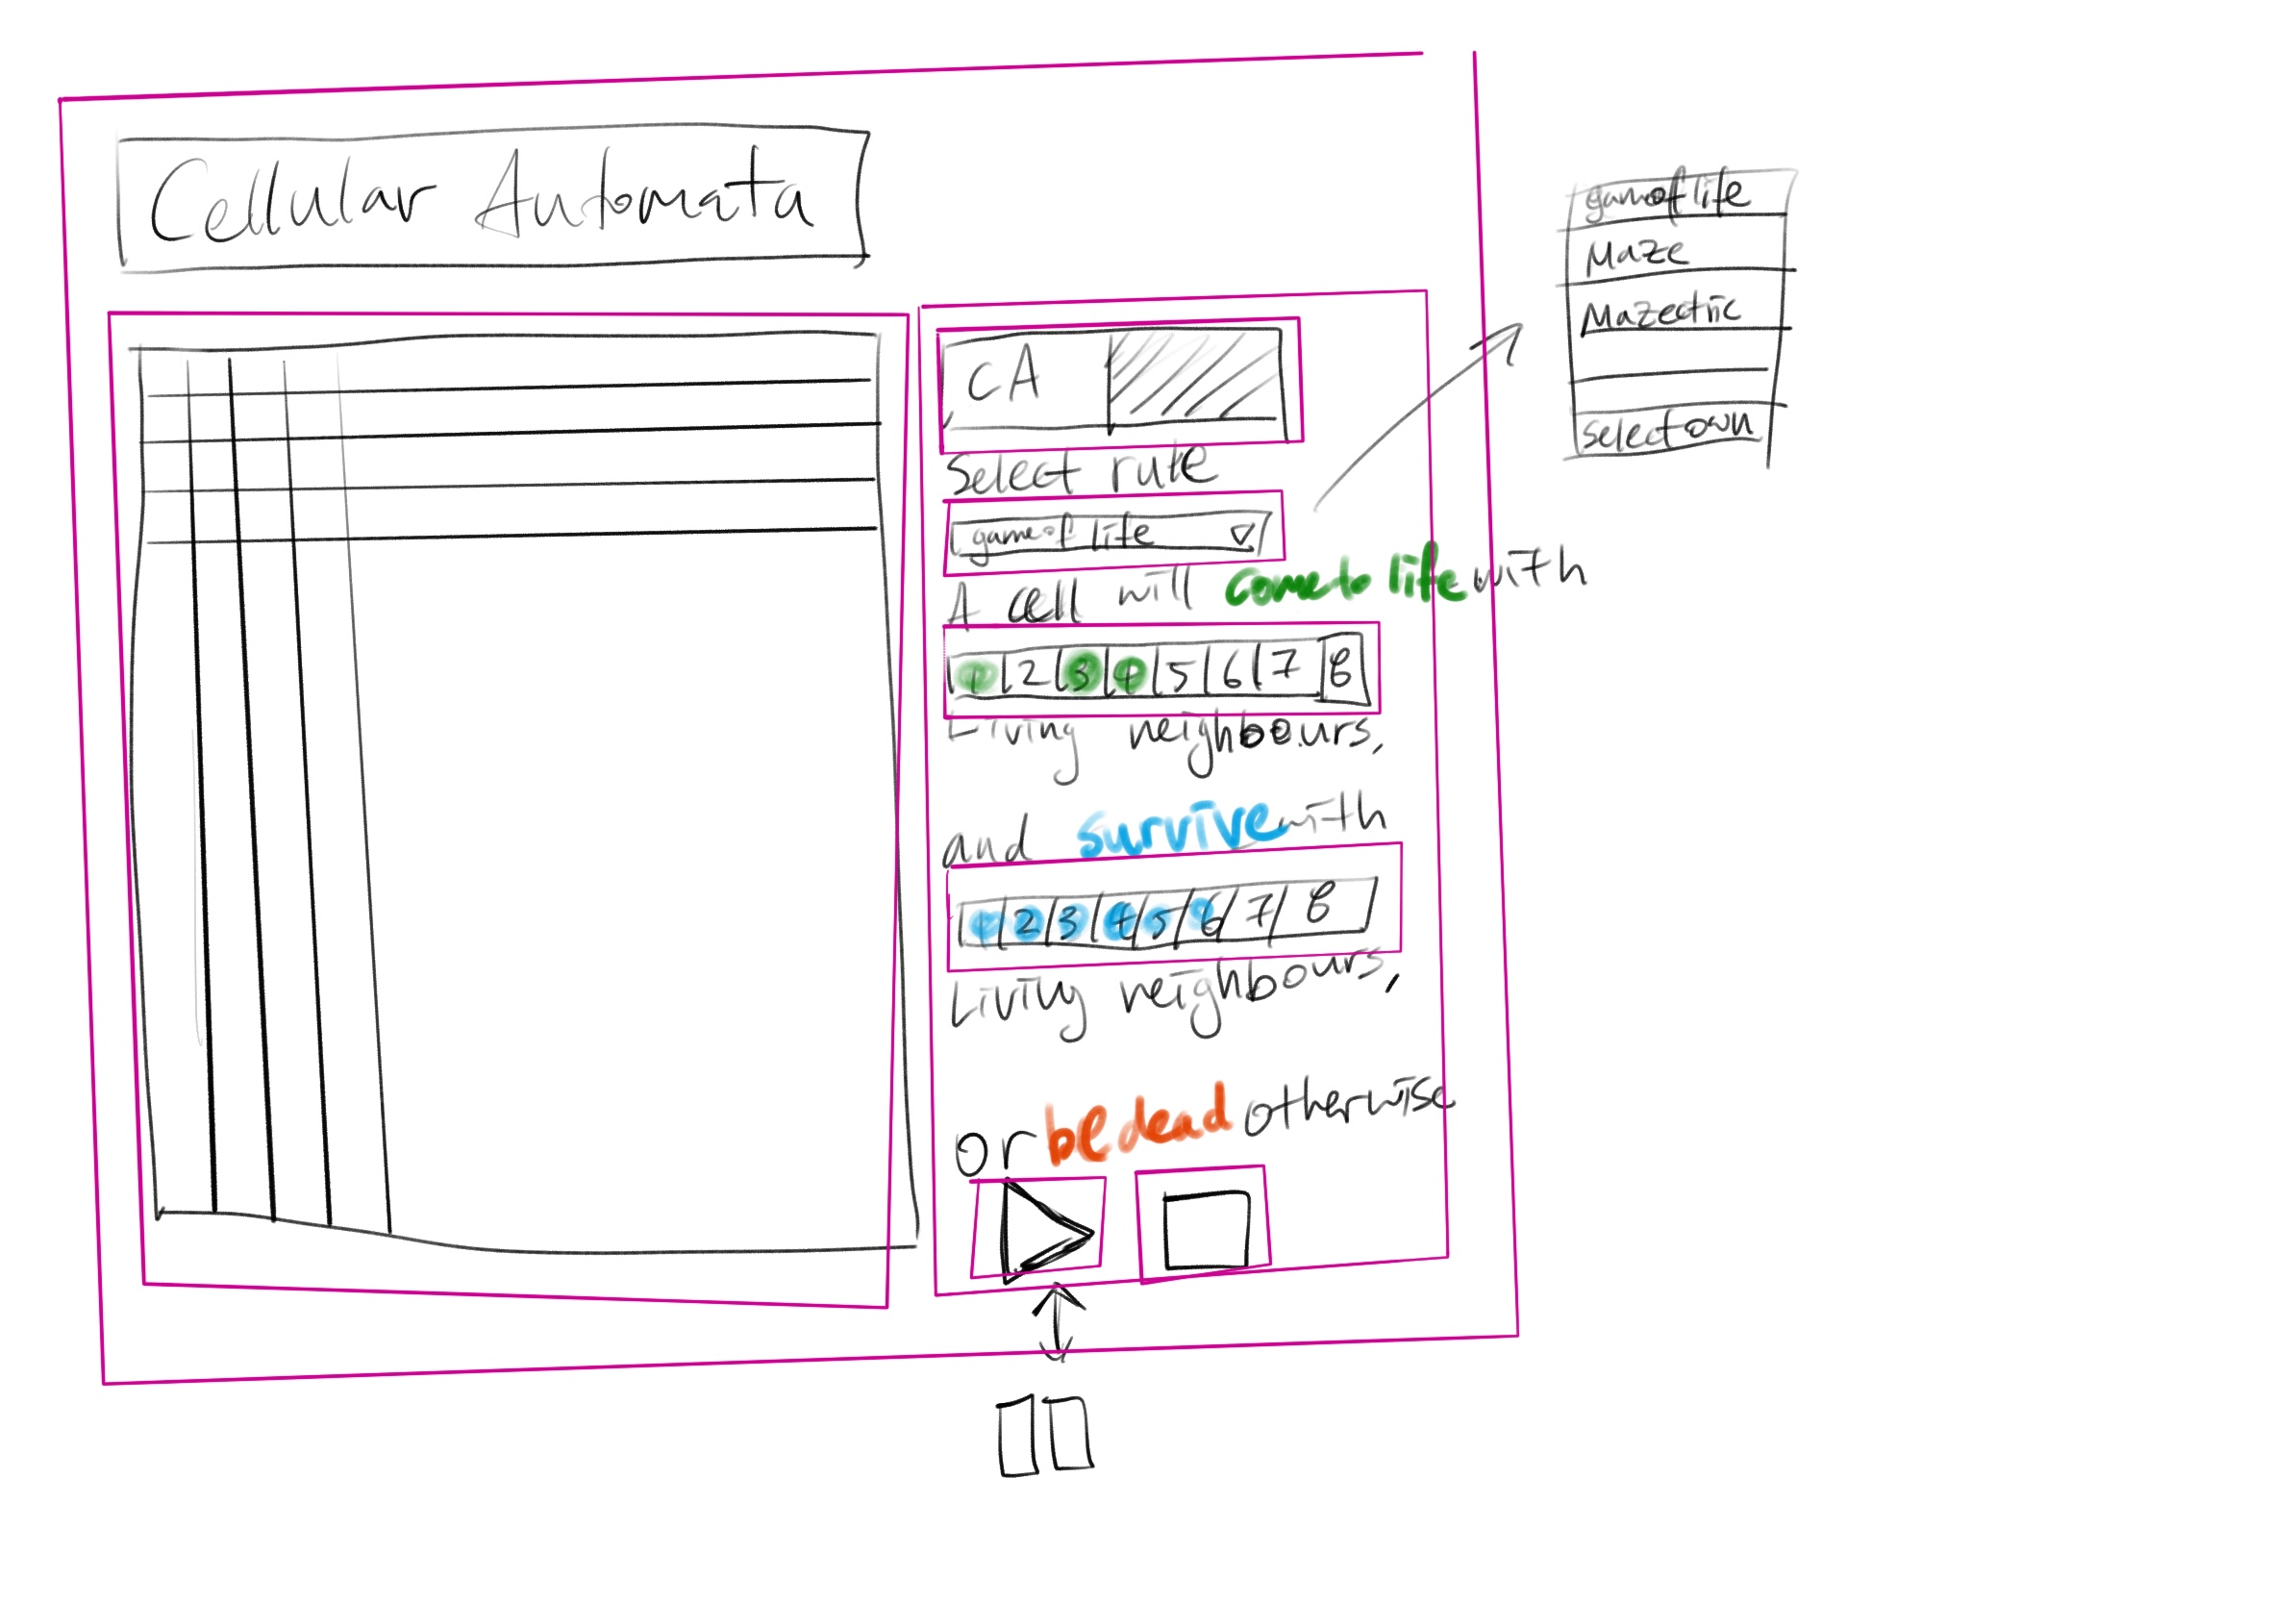 Cellular Automata
CA
Select rule
game of life
A cell will come to life with
1 2 3 4 5 6 7 8
Living neighbours,
and survive with
1 2 3 4 5 6 7 8
Living neighbours,
or be dead otherwise
game of life
Maze
Mazectric
select own